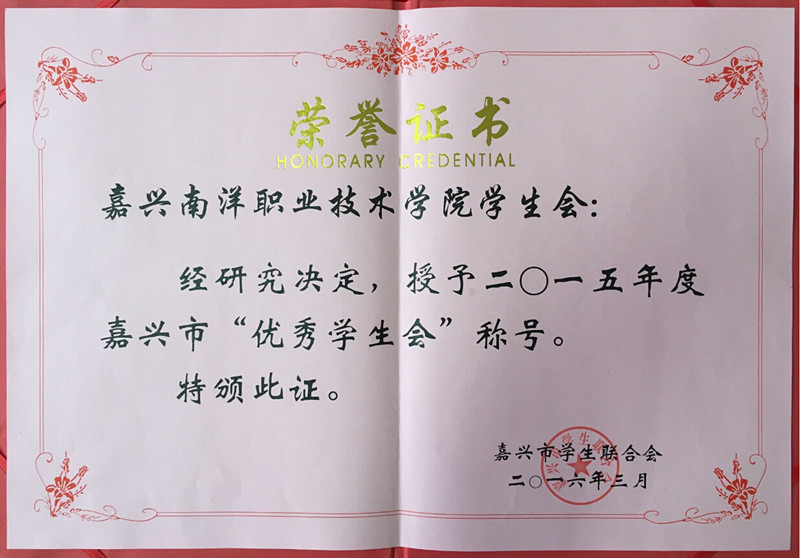 荣誉证书
HONORARY CREDENTIAL
嘉兴南洋职业技术学院学生会：
经研究决定，授予二〇一五年度
嘉兴市“优秀学生会”称号。
特颁此证。
嘉兴市学生联合会
二〇一六年三月